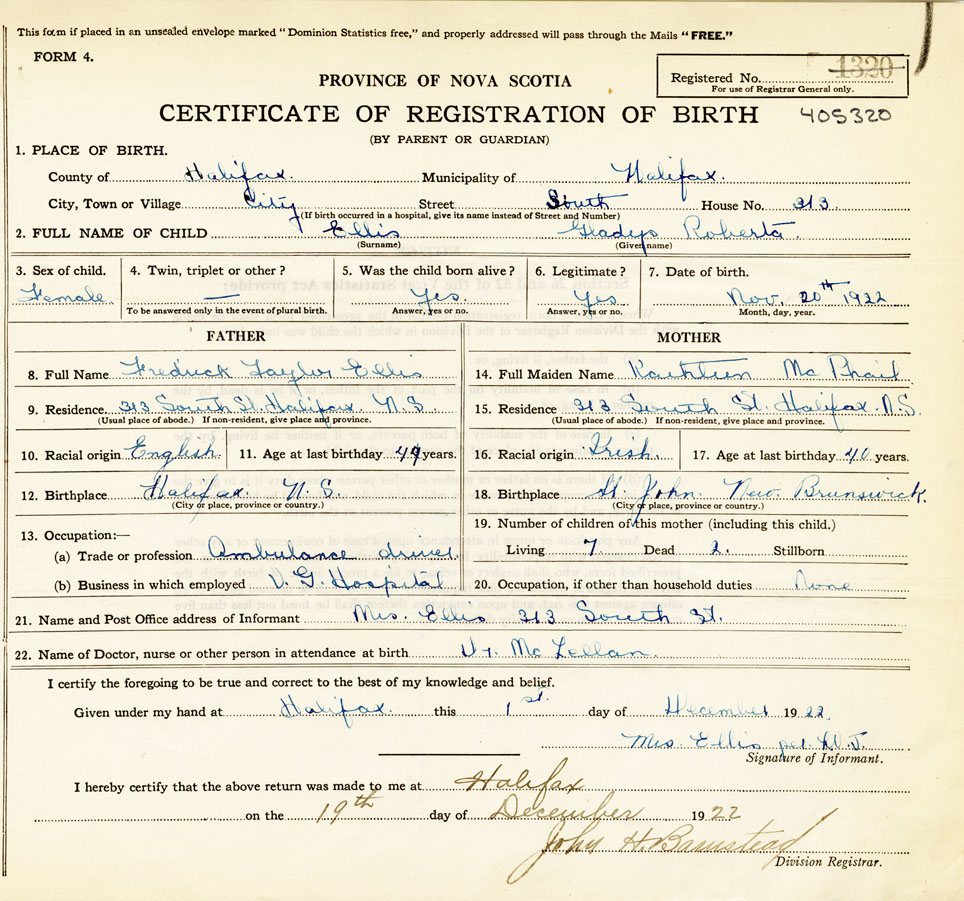 This form if placed in an unsealed envelope marked "Dominion Statistics free," and properly addressed will pass through the Mails "FREE."
FORM 4.
1320
Registered No.
For use of Registrar General only.
PROVINCE OF NOVA SCOTIA
CERTIFICATE OF REGISTRATION OF BIRTH 405320
(BY PARENT OR GUARDIAN)
1. PLACE OF BIRTH.
County of Halifax. Municipality of Halifax.
City, Town or Village City Street South House No. 313.
(If birth occurred in a hospital, give its name instead of Street and Number)
2. FULL NAME OF CHILD Ellis Gladys Roberta.
(Surname) (Given name)
3. Sex of child. 4. Twin, triplet or other? 5. Was the child born alive? 6. Legitimate? 7. Date of birth.
Female. — Yes. Yes Nov. 20th 1922
To be answered only in the event of plural birth. Answer, yes or no. Answer, yes or no. Month, day, year.
FATHER MOTHER
8. Full Name Fredrick Taylor Ellis 14. Full Maiden Name Kathleen Mc Phail
9. Residence 313 South St. Halifax N.S 15. Residence 313 South St. Halifax. N.S.
(Usual place of abode.) If non-resident, give place and province. (Usual place of abode.) If non-resident, give place and province.
10. Racial origin English. 11. Age at last birthday 44 years. 16. Racial origin Irish. 17. Age at last birthday 40 years.
12. Birthplace Halifax. N.S. 18. Birthplace St. John. New Brunswick.
(City or place, province or country.) (City or place, province or country.)
13. Occupation:— 19. Number of children of this mother (including this child.)
(a) Trade or profession Ambulance driver. Living 7 Dead 2. Stillborn
(b) Business in which employed V. G. Hospital 20. Occupation, if other than household duties None
21. Name and Post Office address of Informant Mrs. Ellis 313 South St.
22. Name of Doctor, nurse or other person in attendance at birth Dr. Mc Lellan.
I certify the foregoing to be true and correct to the best of my knowledge and belief.
Given under my hand at Halifax. this 1st. day of December 1922
Mrs. Ellis per.
Signature of Informant.
I hereby certify that the above return was made to me at Halifax
on the 19th day of December 1922
John H. Barnstead
Division Registrar.